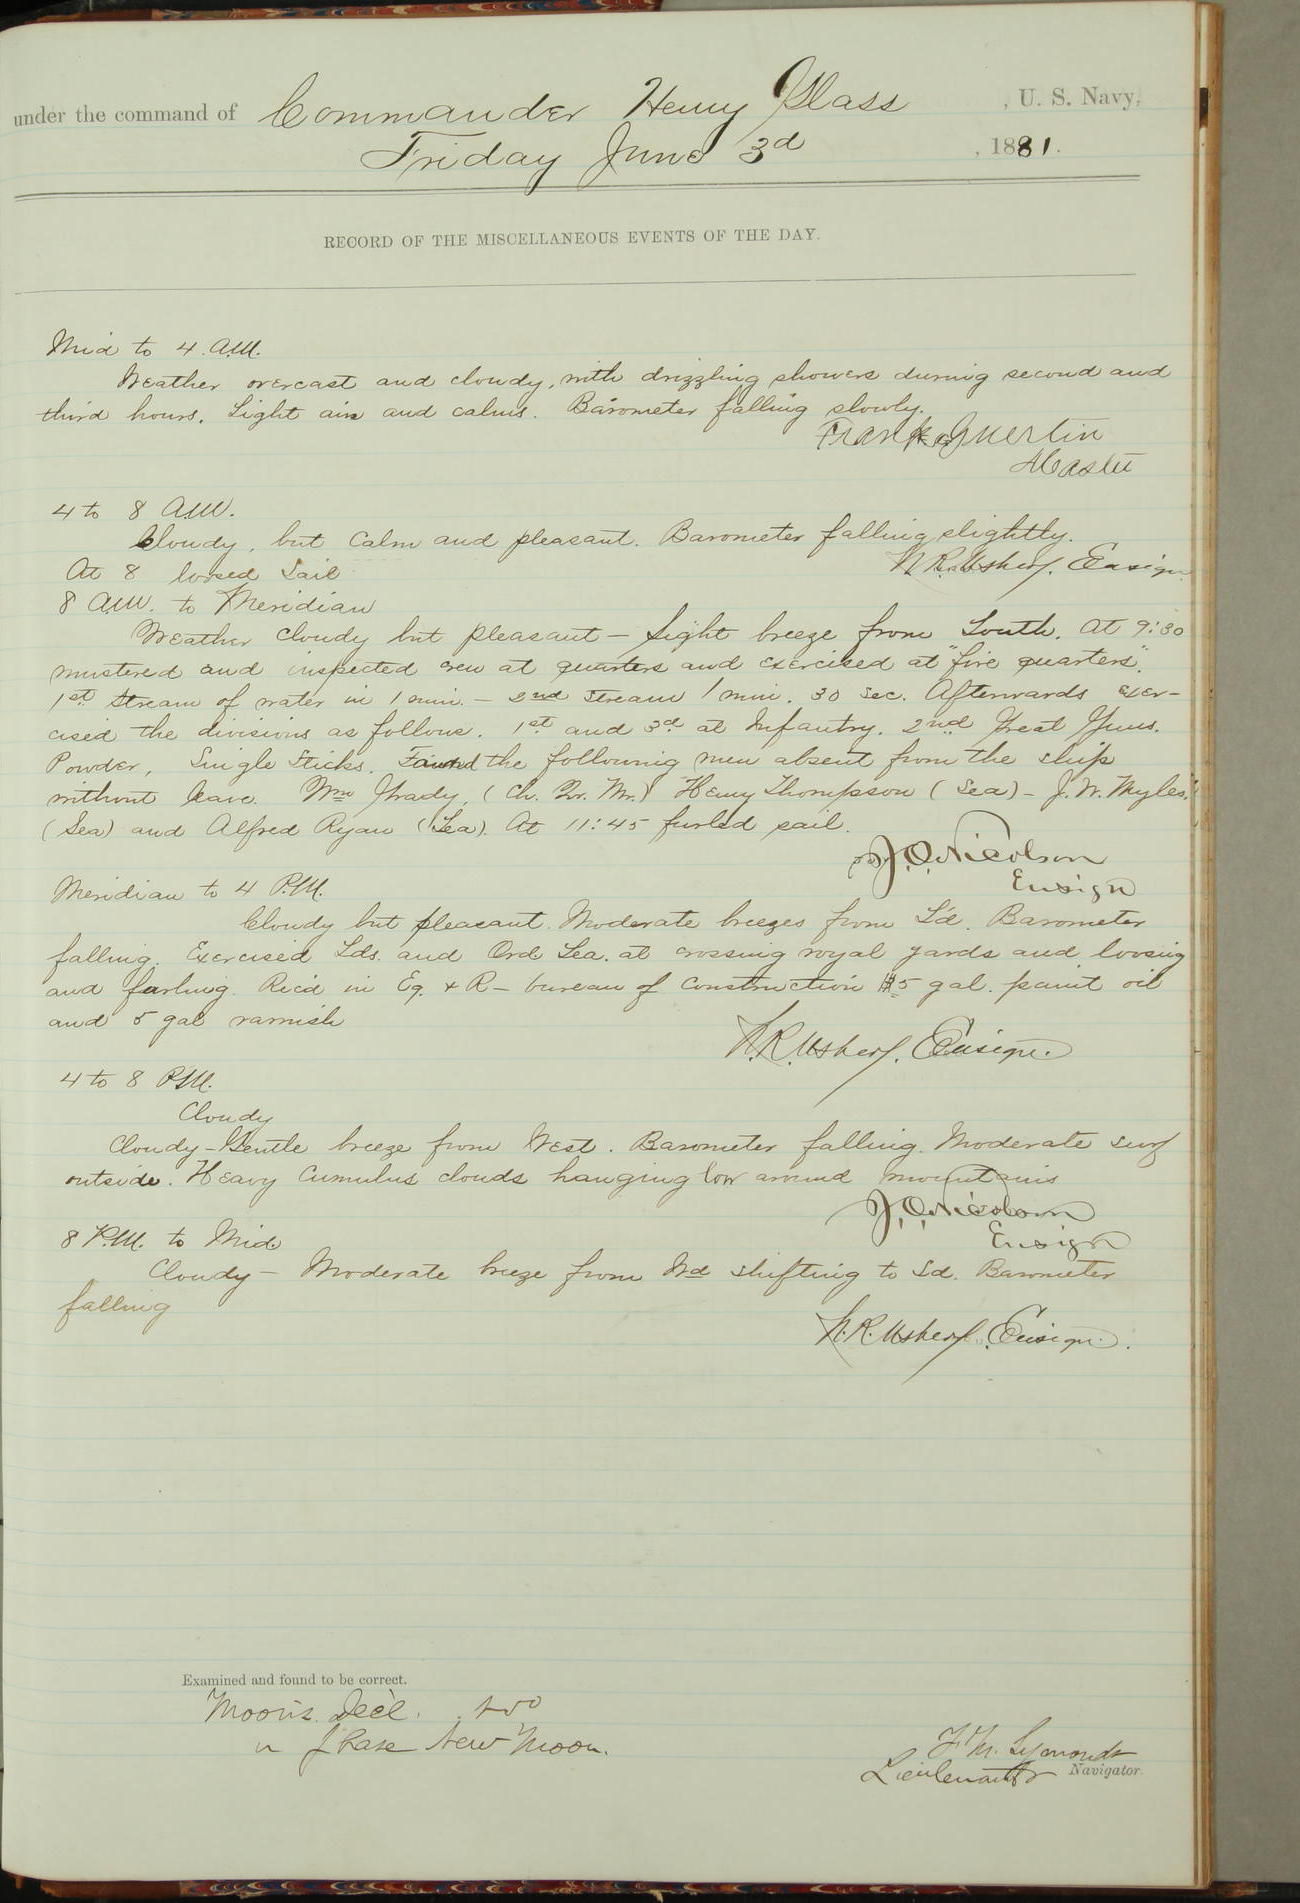 under the command of Commander Henry Glass, U. S. Navy,
Friday June 3d, 1881.
RECORD OF THE MISCELLANEOUS EVENTS OF THE DAY.
Mid to 4 A.M.
Weather overcast and cloudy, with drizzling showers during second and
third hours. Light airs and calms. Barometer falling slowly.
Frank Guertin
Master
4 to 8 A.M.
Cloudy, but calm and pleasant. Barometer falling slightly.
At 8 loosed sail
N. R. Usher, Ensign
8 A.M. to Meridian
Weather cloudy but pleasant — Light breeze from South. At 9:30
mustered and inspected crew at quarters and exercised at "fire quarters".
1st stream of water in 1 min. — 2nd stream 1 min. 30 sec. Afterwards exer-
cised the divisions as follows. 1st and 3d at Infantry. 2nd Great Guns.
Powder, Single Sticks. Found the following men absent from the ship
without leave. Wm Grady, (Ch. Qr. Mr.) Henry Thompson (Sea) — J. W. Myles
(Sea) and Alfred Ryan (Sea). At 11:45 furled sail.
J. O. Nicolson
Ensign
Meridian to 4 P.M.
Cloudy but pleasant. Moderate breezes from S'd. Barometer
falling. Exercised Lds. and Ord Sea. at crossing royal yards and loosing
and furling. Rec'd in Eq. & R — bureau of construction 5 gal. paint oil
and 5 gal varnish
N. R. Usher, Ensign.
4 to 8 P.M.
Cloudy
Cloudy — Gentle breeze from West. Barometer falling. Moderate surf
outside. Heavy cumulus clouds hanging low around mountains
J. O. Nicolson
Ensign
8 P.M. to Mid.
Cloudy — Moderate breeze from Nd shifting to Sd. Barometer
falling
N. R. Usher, Ensign.
Examined and found to be correct.
Moon's Decl.
" Phase New Moon.
F. M. Symonds
Lieutenant & Navigator.